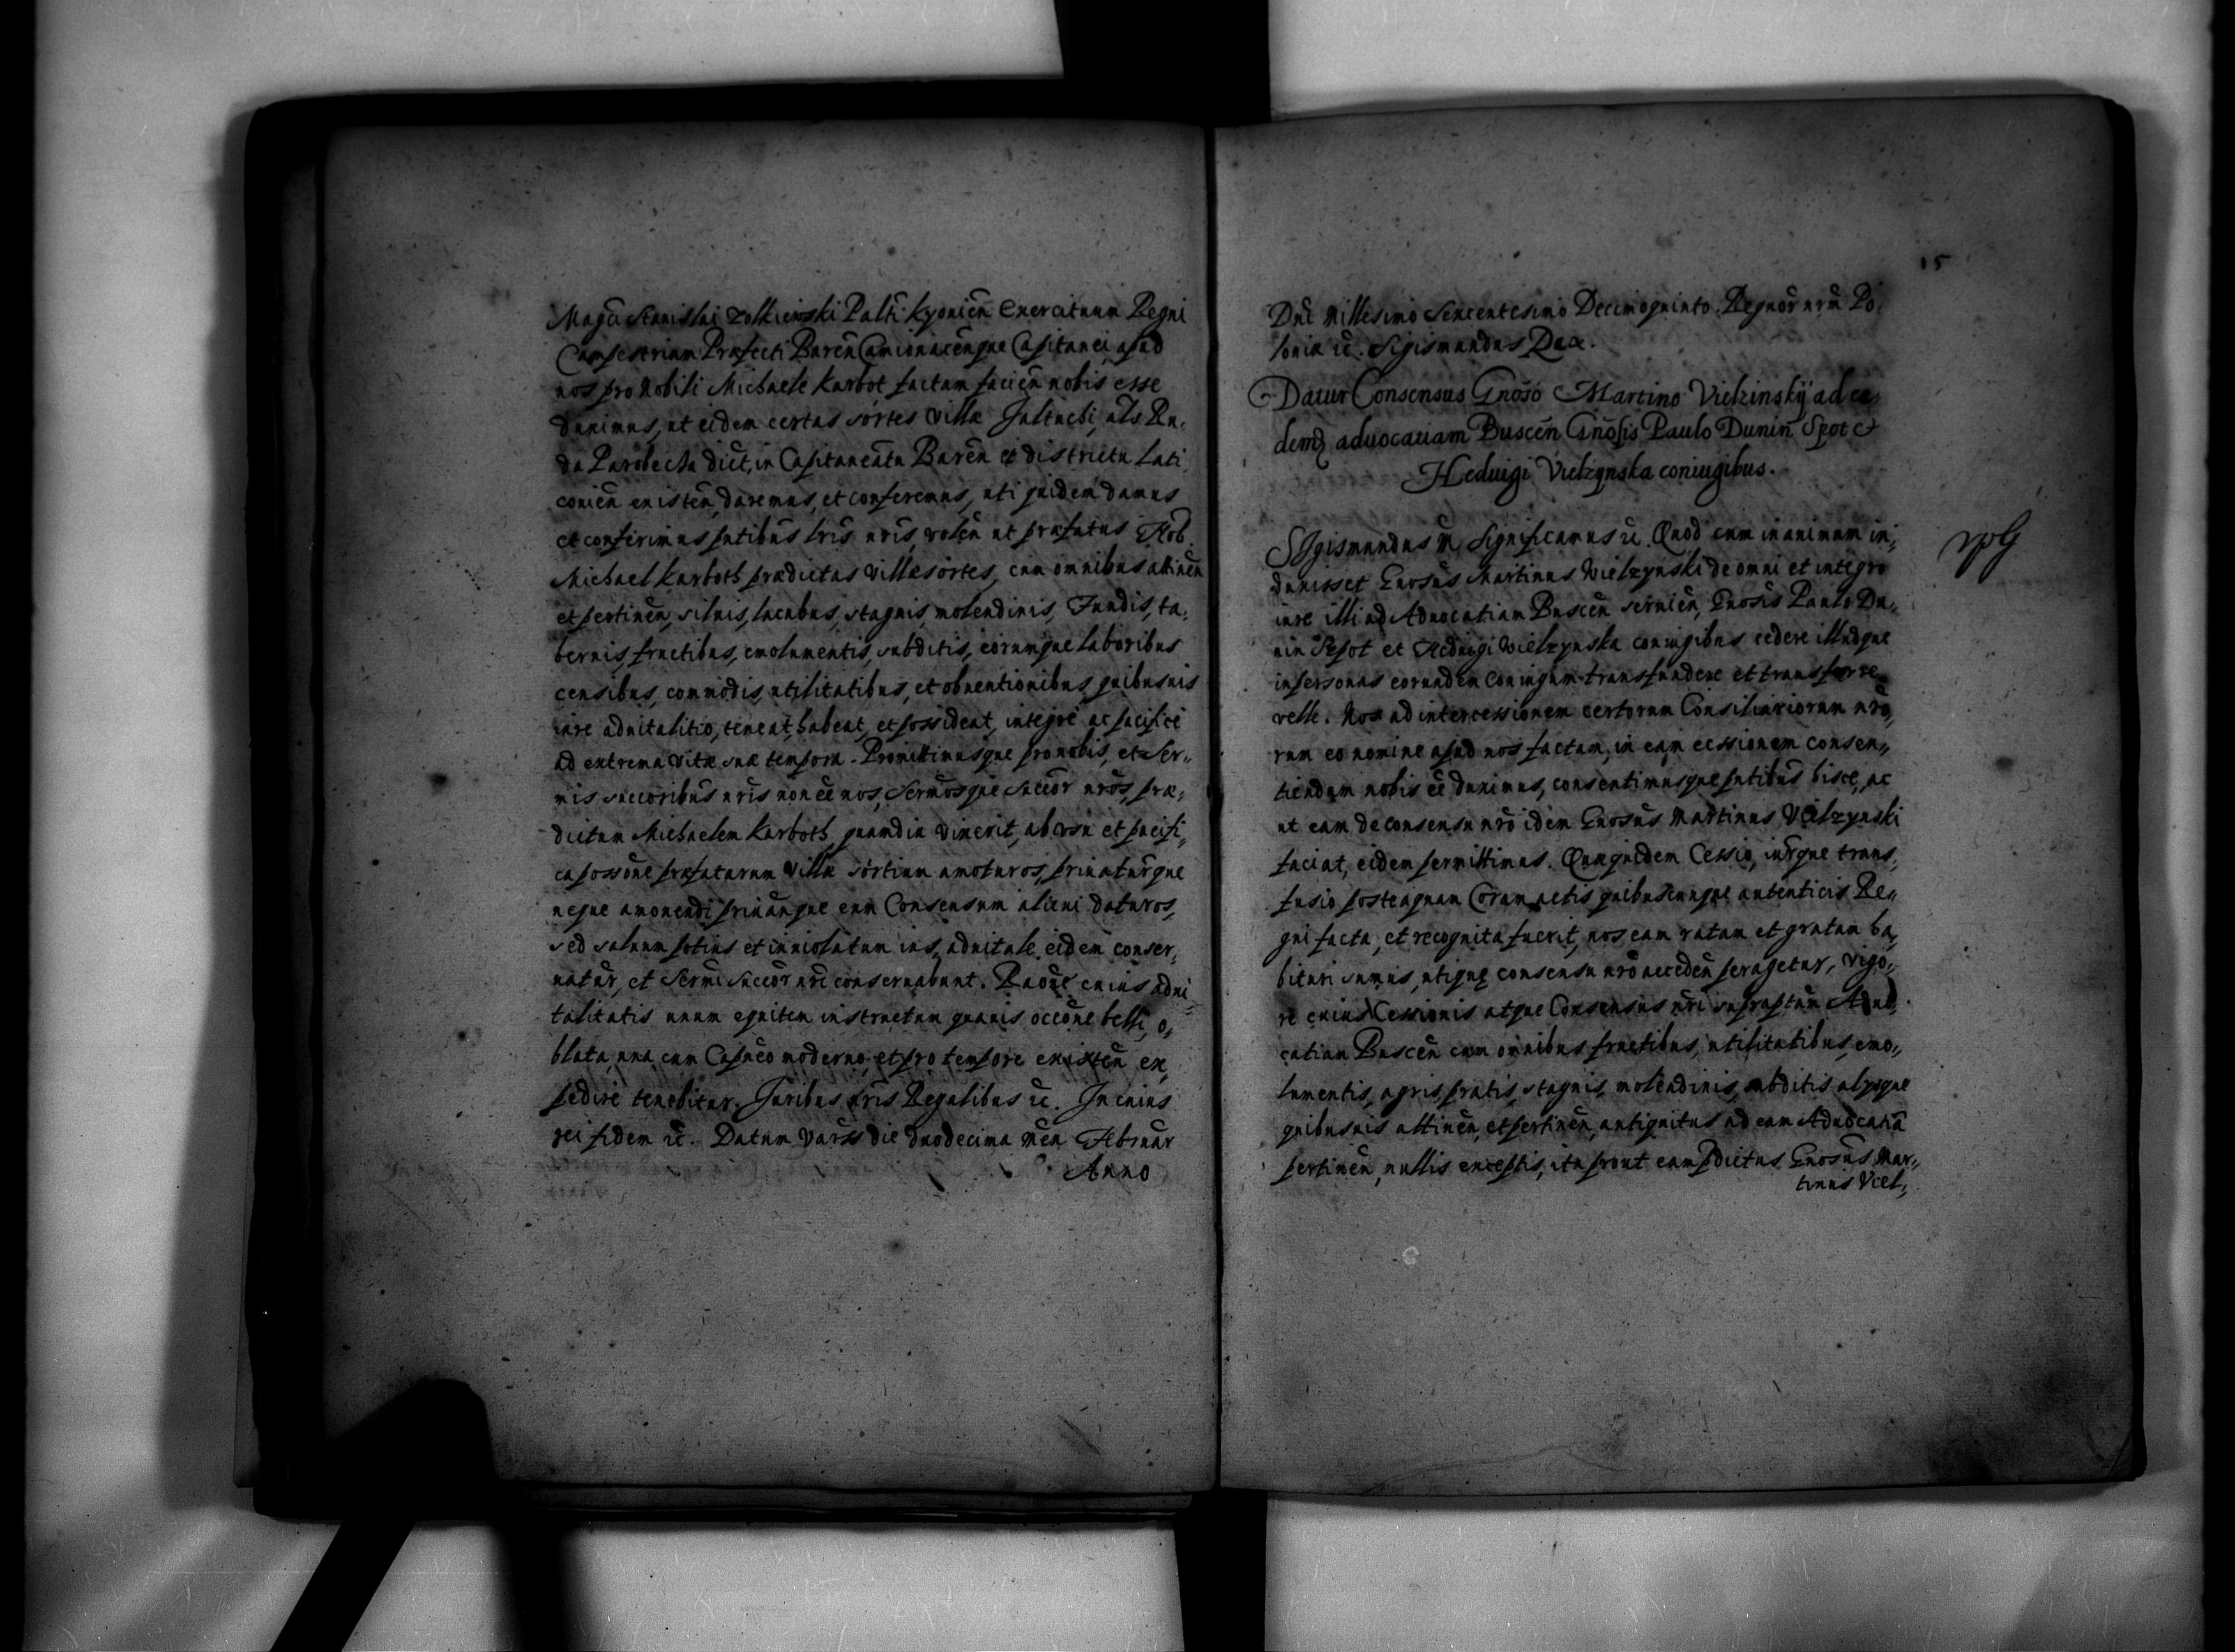 Magci Stanislai Zolkiewski Palti: Kyouien Exercituum Regni
Campestrium Præfecti Baren Camionacenque Capitanei apud
nos pro Nobili Michaele Karbot factam facien nobis esse
duximus, ut eidem certas sortes Villæ Jaltuchi, als Ru,
da Parobecka dict, in Capitaneatu Baren et districtu Lati
conien existen, daremus, et conferemus, uti quidem damus
et conferimus pntibus lris nris, volen ut præfatus Nob
Michael Karboth prædictas Villæ sortes, cum omnibus attinen
et pertinen, siluis, lacubus, stagnis, molendinis, Fundis, ta,
bernis, fructibus, emolumentis, subditis, eorumque laboribus
censibus, commodis, utilitatibus, et obuentionibus quibusuis
iure aduitalitio, teneat, habeat, et possideat, integre ac pacifice
ad extrema vitæ suæ tempora. Promittimusque pro nobis, et Ser,,
mis succoribus nris non ee nos, Sermosque Succor nros, præ,
dictum Michaelem Karboth, quamdiu vixerit, ab usu et pacifi,
ca possone præfatarum Villæ sortium amoturos, priuaturosque
neque amouendi priuanque eum Consensum alicui daturos,
sed saluum potius et inuiolatum ius, aduitale eidem conser,
uatur, et Sermi Succor nri conseruabunt. Raone cuius adui
talitatis unum equitem instructum quauis occone belli, o,
blata, una cum Capneo moderno, et pro tempore existen ex,
pedire tenebitur. Juribus nris Regalibus ec. In cuius
rei fidem ec. Datum Vars die duodecima Men Februar
Anno
15
Dni Millesimo Sexcentesimo Decimoquinto. Regnor nrm Po,
loniæ ec. Sigismundus Rex.
Datur Consensus Gnoso Martino Vielzinskÿ ad ce,
dend aduocatiam Buscen Gnosis Paulo Dunin Spot et
Heduigi Vielzynska coniugibus.
SIgismundus M, Significamus ec. Quod cum in animum in,
duxisset Gnosus Martinus Wielzynski de omni et integro
iure illi ad Aduocatiam Buscen seruien, Gnosis Paulo Du,,
nin Szpot et Heduigi Wielzynska coniugibus cedere illudque
in personas eorundem coniugum transfundere et transferre
velle. Nos ad intercessionem certorum Consiliariorum nro,
rum eo nomine apud nos factam, in eam cessionem consen,,
tiendum nobis ee duximus, consentimusque pntibus hisce, ac
ut eam de consensu nro idem Gnosus Martinus Vielzynski
faciat, eidem permittimus. Quæquidem Cessio, iurque trans,
fusio posteaquam Coram actis quibuscunque autenticis Re,,
gni facta, et recognita fuerit, nos eam ratam et gratam ha,
bituri sumus, utique consensu nro acceden peragetur, vigo,,
re cuius Cessionis atque Consensus nri suprascptam Aduo,
catiam Buscen cum omnibus fructibus, utilitatibus, emo,,
lumentis, agris, pratis, stagnis, molendinis, subditis alysque
quibusuis attinen, et pertinen, antiquitus ad eam Aduocatia
pertinen, nullis exceptis, ita prout eam pdictus Gnosus Mar,,
tinus Viel,